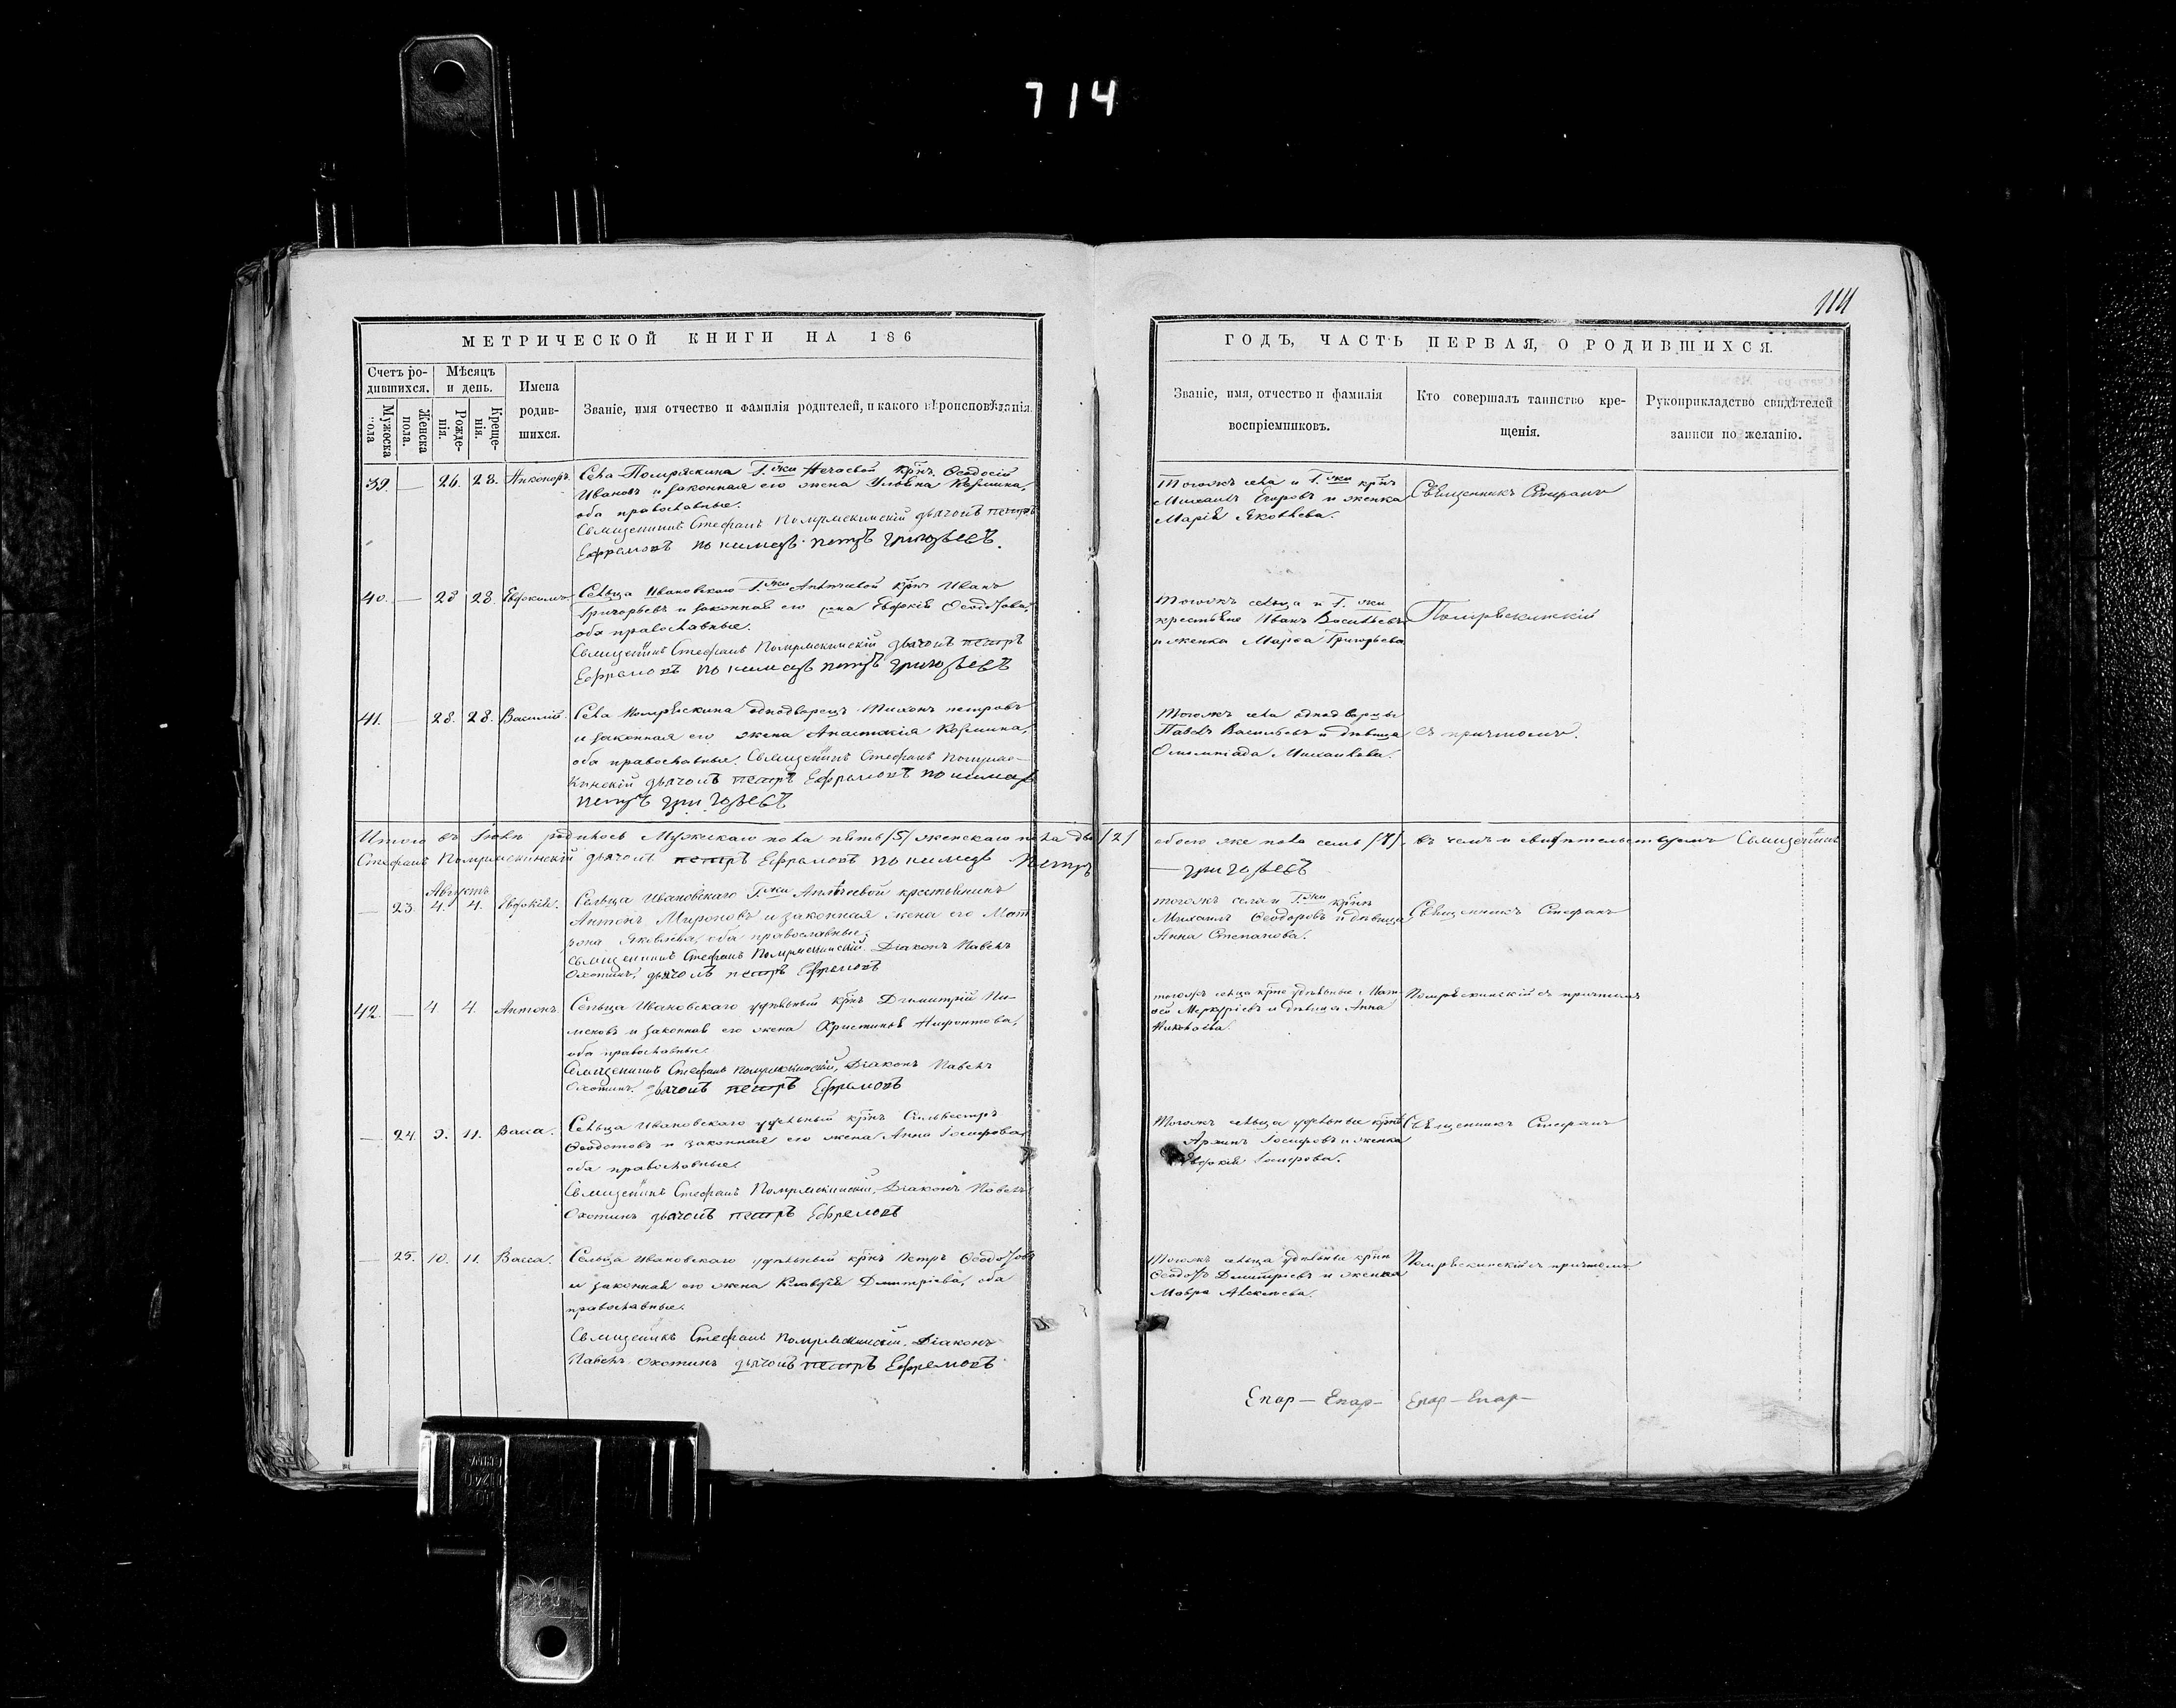 714
114
МЕТРИЧЕСКОЙ КНИГИ НА 186
Счетъ ро-
дившихся.
Мѣсяцъ
и день.
Имена
родив-
шихся.
Мужеска
пола
Женска
пола.
Рожде-
нія.
Креще-
нія.
Званіе, имя отчество и фамилія родителей, и какого вѣроисповѣданія.
39. — 26. 28. Никоноръ.
Села Помряскина Г.жи Нечаевой крнъ Ѳеодосій
Ивановъ и законная его жена Ульяна Козмина,
оба православные.
Священникъ Стефанъ Помряскинскій дьячокъ петръ
Ефремовъ пономарь петръ григорьевъ.
40. — 28 28. Евфимъ
Сельца Ивановскаго Г.жи крнъ Иванъ
Григорьевъ и законная его жена Евдокія Ѳеодотова,
оба православные.
Священникъ Стефанъ Помряскинскій дьячокъ петръ
Ефремовъ пономарь петръ григорьевъ
41. — 28. 28. Василій.
Села Помряскина однодворецъ Тихонъ петровъ
и законная его жена Анастасія Козмина,
оба православные. Священникъ Стефанъ Помряс-
кинскій дьячокъ петръ Ефремовъ пономарь
петръ григорьевъ
Итого въ Іюлѣ родилось Мужескаго пола пять /5/ женскаго пола два /2/
Стефанъ Помряскинскій дьячокъ петръ Ефремовъ пономарь Петръ
Августъ
— 23. 4. 4. Евдокія.
Сельца Ивановскаго Г.жи крестьянинъ
Антонъ Мироновъ и законная жена его Мат
рона Яковлева, оба православные.
Священникъ Стефанъ Помряскинскій. Діаконъ Павелъ
Охотинъ, дьячокъ петръ Ефремовъ
42. — 4 4. Антонъ.
Сельца Ивановскаго удѣльный крнъ Димитрій Пи-
меновъ и законная его жена Христинья Нифонтова,
оба православные.
Священникъ Стефанъ Помряскинскій, Діаконъ Павелъ
Охотинъ. дьячокъ петръ Ефремовъ
— 24. 9. 11. Васса.
Сельца Ивановскаго удѣльный крнъ Сильвестръ
Ѳеодотовъ и законная его жена Анна Іосифова,
оба православные.
Священникъ Стефанъ Помряскинскій, Діаконъ Павелъ
Охотинъ дьячокъ петръ Ефремовъ
— 25. 10. 11. Васса.
Сельца Ивановскаго удѣльный крнъ Петръ Ѳеодотовъ
и законная его жена Клавдія Дмитріева, оба
православные.
Священникъ Стефанъ Помряскинскій, Діаконъ
Павелъ Охотинъ дьячокъ петръ Ефремовъ.
ГОДЪ, ЧАСТЬ ПЕРВАЯ, О РОДИВШИХСЯ.
Званіе, имя, отчество и фамилія
воспріемниковъ.
Кто совершалъ таинство кре-
щенія.
Рукоприкладство свидѣтелей
записи по желанію.
Тогожъ села и Г.жи крнъ
Михаилъ Егоровъ и женка
Марія Яковлева.
Священникъ Стефанъ
Тогожъ сельца и Г.жи
крестьяне Иванъ Васильевъ
и женка Марѳа Григорьева
Помряскинскій
Тогожъ села однодворцы
Павелъ Васильевъ и дѣвица
Олимпіада Михайлова.
съ причтомъ.
обоего же пола семь /7/, въ чемъ и свидѣтельствуемъ Священникъ
— григорьевъ
тогожъ села и Г.жи крнъ
Михаилъ Ѳеодоровъ и дѣвица
Анна Степанова.
Священникъ Стефанъ
тогожъ сельца крне удѣльные Мат-
ѳей Меркурьевъ и дѣвица Анна
Николаева.
Помряскинскій съ причтомъ
Тогожъ сельца удѣльные крне
Іосифовъ и женка
Евдокія Іосифова.
Священникъ Стефанъ
Тогожъ сельца удѣльные крне
Ѳеодотъ Димитріевъ и женка
Мавра Алексѣева.
Помряскинскій съ причтомъ
Епар— Епар— Епар—Епар—